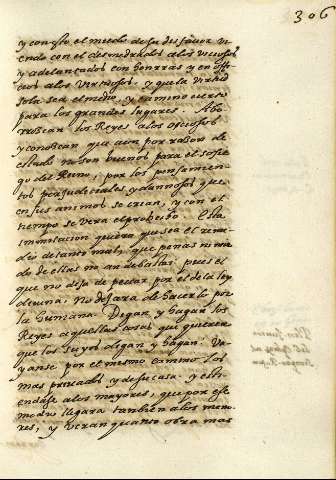 306
y con esto el miedo de su desfavor vi
endo con el desmedrados a los viciosos
y adelantados con honrras y en offi
cios a los virtuosos, y que la virtud
sola sea el medio, y camino cierto
para los grandes lugares. Abo
rrezcan los Reyes a los ociosos
y conozcan que aun por razon de
estado no son buenos para el sosie
go del Reino; por los pensamien
tos perjudiciales y dannosos que
en sus animos se crian, y con el
tiempo se vera el probecho. Esta
imitacion quiera que sea el reme
dio de tanto mal, que penas ni mie
do de ellas no an de bastar; pues el
que no deja de pecar por el de la ley
divina, no dejara de hacerlo por
la humana. Digan y hagan los
Reyes aquellas cosas que quieren
que los suyos digan y hagan. Va
yanse por el mismo camino los
mas privados y de su casa. y estien
endase a los mayores, que por este
modo llegara tambien a los meno
res; y veran quanto obra mas